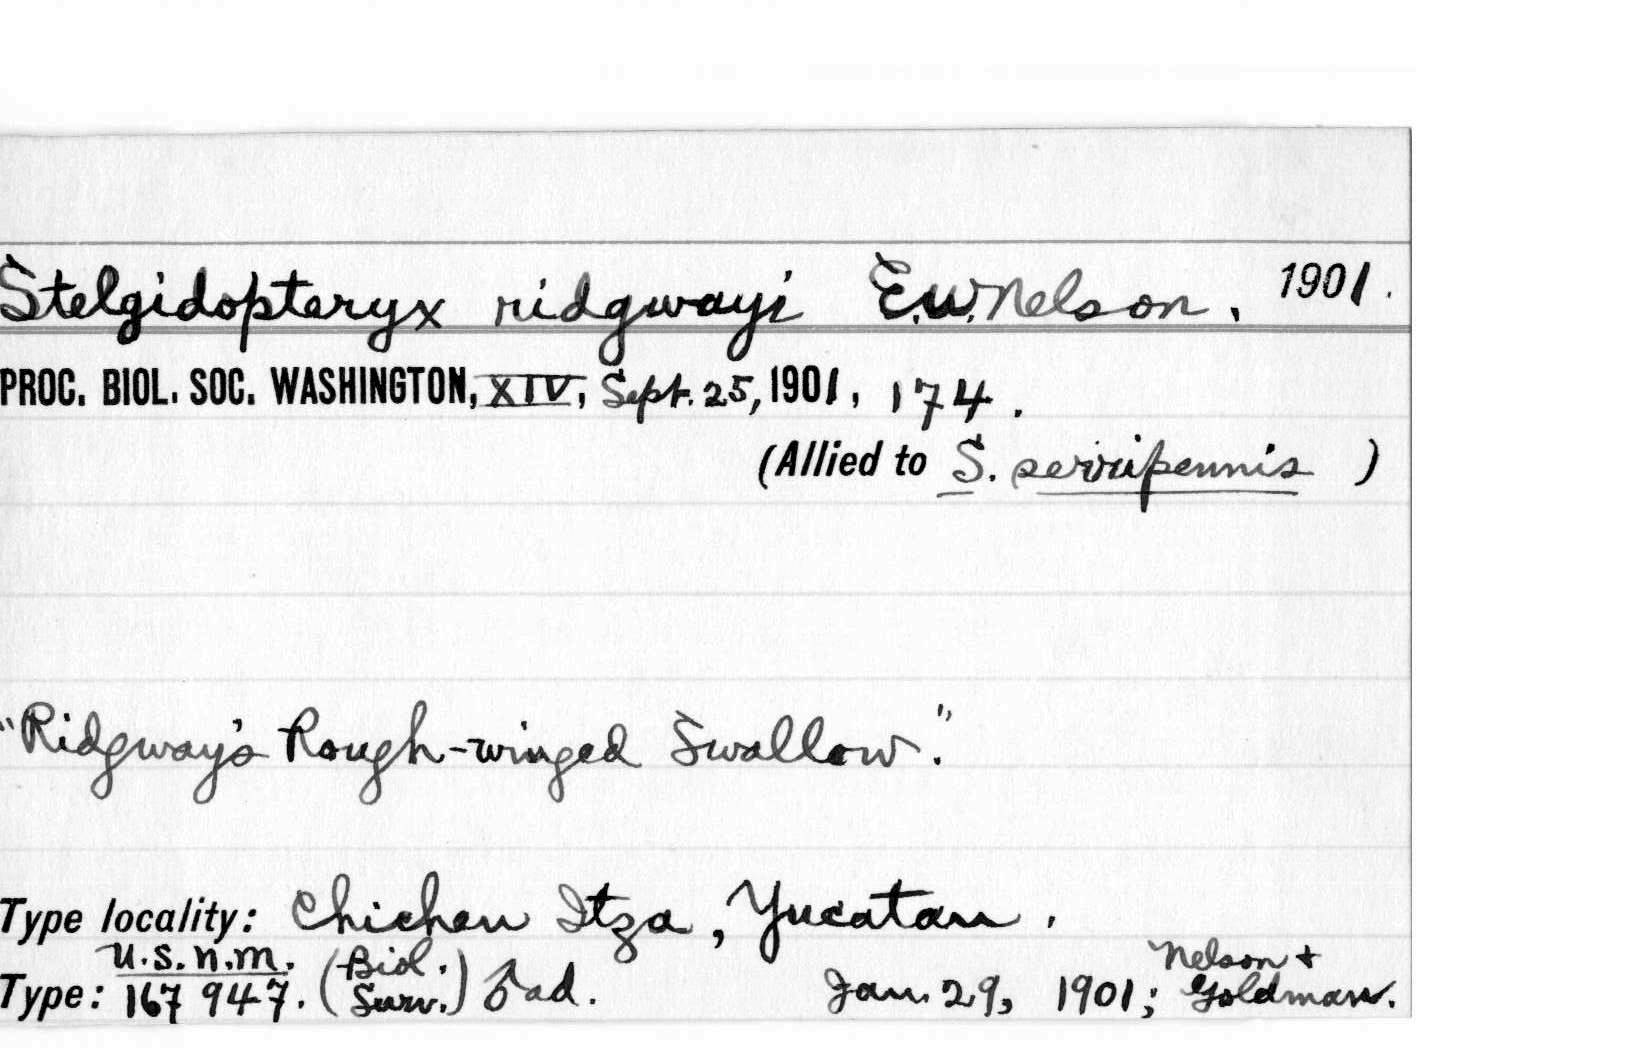 Stelgidopteryx ridgwayi E.W. Nelson, 1901.
PROC. BIOL. SOC. WASHINGTON, XIV, Sept. 25, 1901, 174.
(Allied to S. serripennis )
"Ridgway's Rough-winged Swallow."
Type locality: Chichen Itza, Yucatan.
U.S.N.M. (Biol. Nelson +
Type: 167 947. Surv.) ♂ ad. Jan. 29, 1901; Goldman.